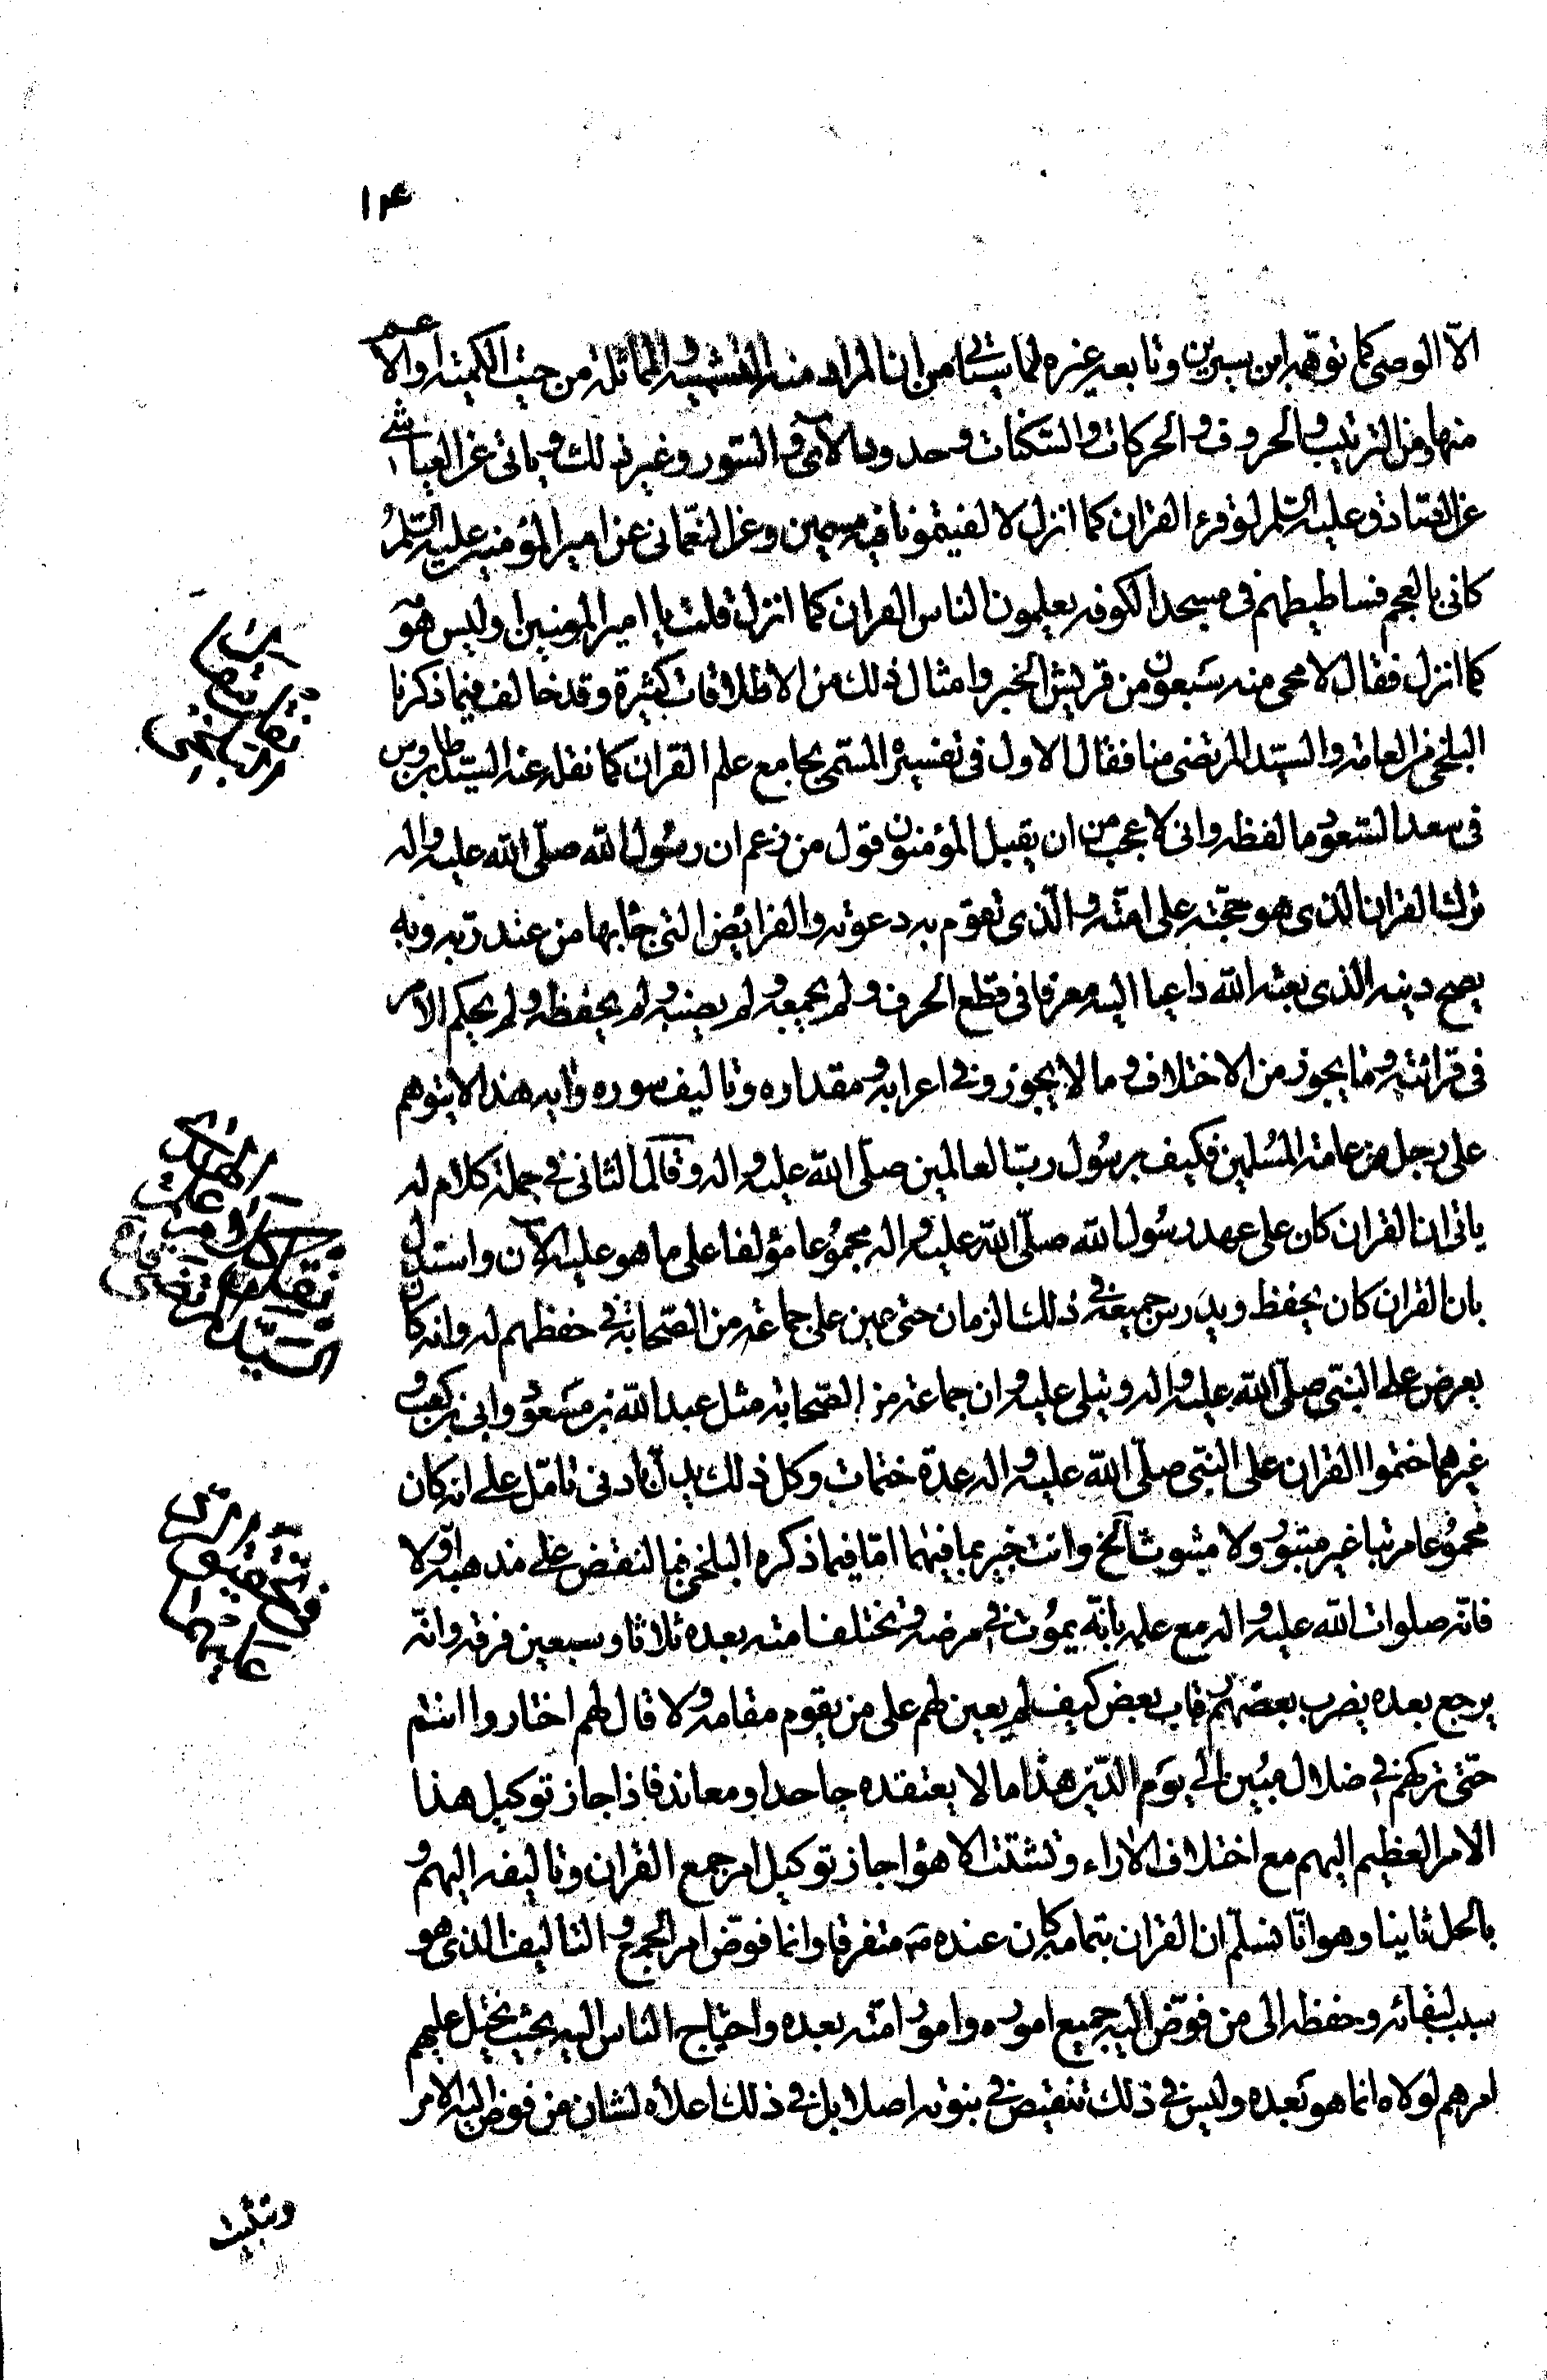 ١٤
الّا الوصى كما توهّمه ابن سيرين وتابعه غيره لما سيأتى من ان المراد منه التشبيه والمماثلة من حيث الكمية او الاعم
منها ومن الترتيب والحروف والحركات والسكنات وحدود الآى والسّور وغير ذلك ويأتى عن العياشى
عن الصّادق عليه السّلم لو قرء القران كما انزل لالفيتمونا فيه مسمين وعن النعمانى عن امير المؤمنين عليه السّلم
كانى بالعجم فساطيطهم فى مسجد الكوفه يعلمون الناس القران كما انزل قلت يا امير المومنين او ليس هو
كما انزل فقال لا محى منه سبعون من قريش الخبر وامثال ذلك من الاطلاقات كثيرة وقد خالف فيما ذكرنا
البلخى من العامة والسيّد المرتضى منا فقال الاول فى تفسيره المسمّى بجامع علم القران كما نقله عنه السيّد بن طاوس
فى سعد السّعود ما لفظه وانى لاعجب من ان يقبل المؤمنون قول من زعم ان رسُول الله صلّى الله عليه واله
ترك القران الذى هو حجّته على امّته والّذى تقوم به دعوته والفرايض التى جاء بها من عند ربّه وبه
يصح دينه الذى بعثه الله داعيا اليه مفرقا فى قطع الحرف ولم يجمعه ولم يصنه ولم يحفظه ولم يحكم الامر
فى قرائته وما يجوز من الاختلاف وما لا يجوز وفى اعرابه ومقداره وتاليف سوره وايه هذا لا يتوهم
على رجل من عامة المُسلمين فكيف برسُول ربّ العالمين صلّى الله عليه واله وقال الثانى فى جملة كلام له
ياتى ان القران كان على عهد رسُول الله صلّى الله عليه واله مجموُعا مؤلفا على ما هو عليه الآن واستدل
بان القران كان يحفظ ويدرس جميعه فى ذلك الزمان حتى عين على جماعة من الصّحابة فى حفظهم له وانه كان
يعرض على النبّى صلّى الله عليه واله ويتلى عليه وان جماعة من الصّحابة مثل عبد الله بن مسَعوُد وابى بن كعب و
غيرهما ختموا القران على النبّى صلّى الله عليه واله عدة ختمات وكل ذلك يدل بادنى تامّل على انه كان
مجموُعا مرتبا غير مبتوُر ولا مبثوث الخ وانت خبير بما فيهما امّا فيما ذكره البلخى فبالنقض على مذهبه اوّلا
فانّه صلوات الله عليه واله مع علمه بانّه يموُت فى مرضه وتختلف امته بعده ثلاثا وسبعين فرقه وانّه
يرجع بعده يضرب بعضهم رقاب بعض كيف لم يعين لهم على من يقوم مقامه ولا قال لهم اختاروا انتم
حتّى تركهم فى ضلال مبُين الى يوَم الدّين هذا ما لا يعتقده جاحد او معاند فاذا جاز توكيل هذا
الامر العظيم اليهم مع اختلاف الاراء وتشتت الاهواء جاز توكيل امر جمع القران وتاليفه اليهم و
بالحل ثانيا وهو انّا نسلّم ان القران بتمامه كان عنده صَ متفرقا وانما فوّض امر الجمع والتاليف الذى هو
سبب لبقائه وحفظه الى من فوّض اليه جميع اموره وامور امّته بعده واحتياج الناس اليه بحيث يختل عليهم
امرهم لولاه انما هو بَعده وليس فى ذلك تنقيص فى بنوته اصلا بل فى ذلك اعلاء لشان من فوض اليه الامر
وتثبيت
نقل كلام
السيّد المرتضى
فى تحقيق